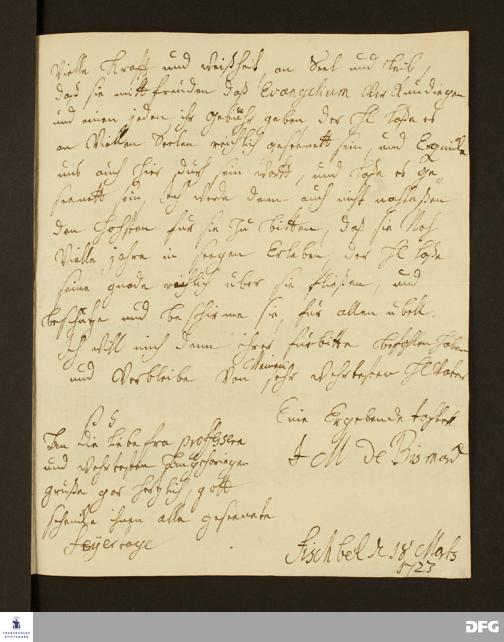 vielle Krafft und weißheit, an Seel und Leib,
daß sie mitt freuden daß Evangelium Ver Kündigen
und einen jeden ihr gebühr geben der H laße es
an Viellen Seelen reichlich geseenett sein, und Erquicke
uns auch hier durch sein wortt, und laße es ge„
seenett sein, Ich werde dann auch nicht nachlaßen
den Höchsten für sie zu bitten, daß sie Noch
Vielle jahre in seegen Erleben, der H laße
seine gnade reichlich über sie fließen, und
beschütze und be schirme sie, für allen übell.
Ich will mich dann ihrer fürbitte befohlen haben
und Verbleibe Von Meinen sehr Wehrtesten H Vater
Eine Ergebende tochter
M de Bismarck
P S
An die liebe fra professern
und wehrtesten Angehörigen
grüße gar hertzlich, gott
schencke ihnen alle geseenete
Feÿertage
Fischbek d 18 Marts
1723
FRANCKESCHE
STIFTUNGEN
DFG